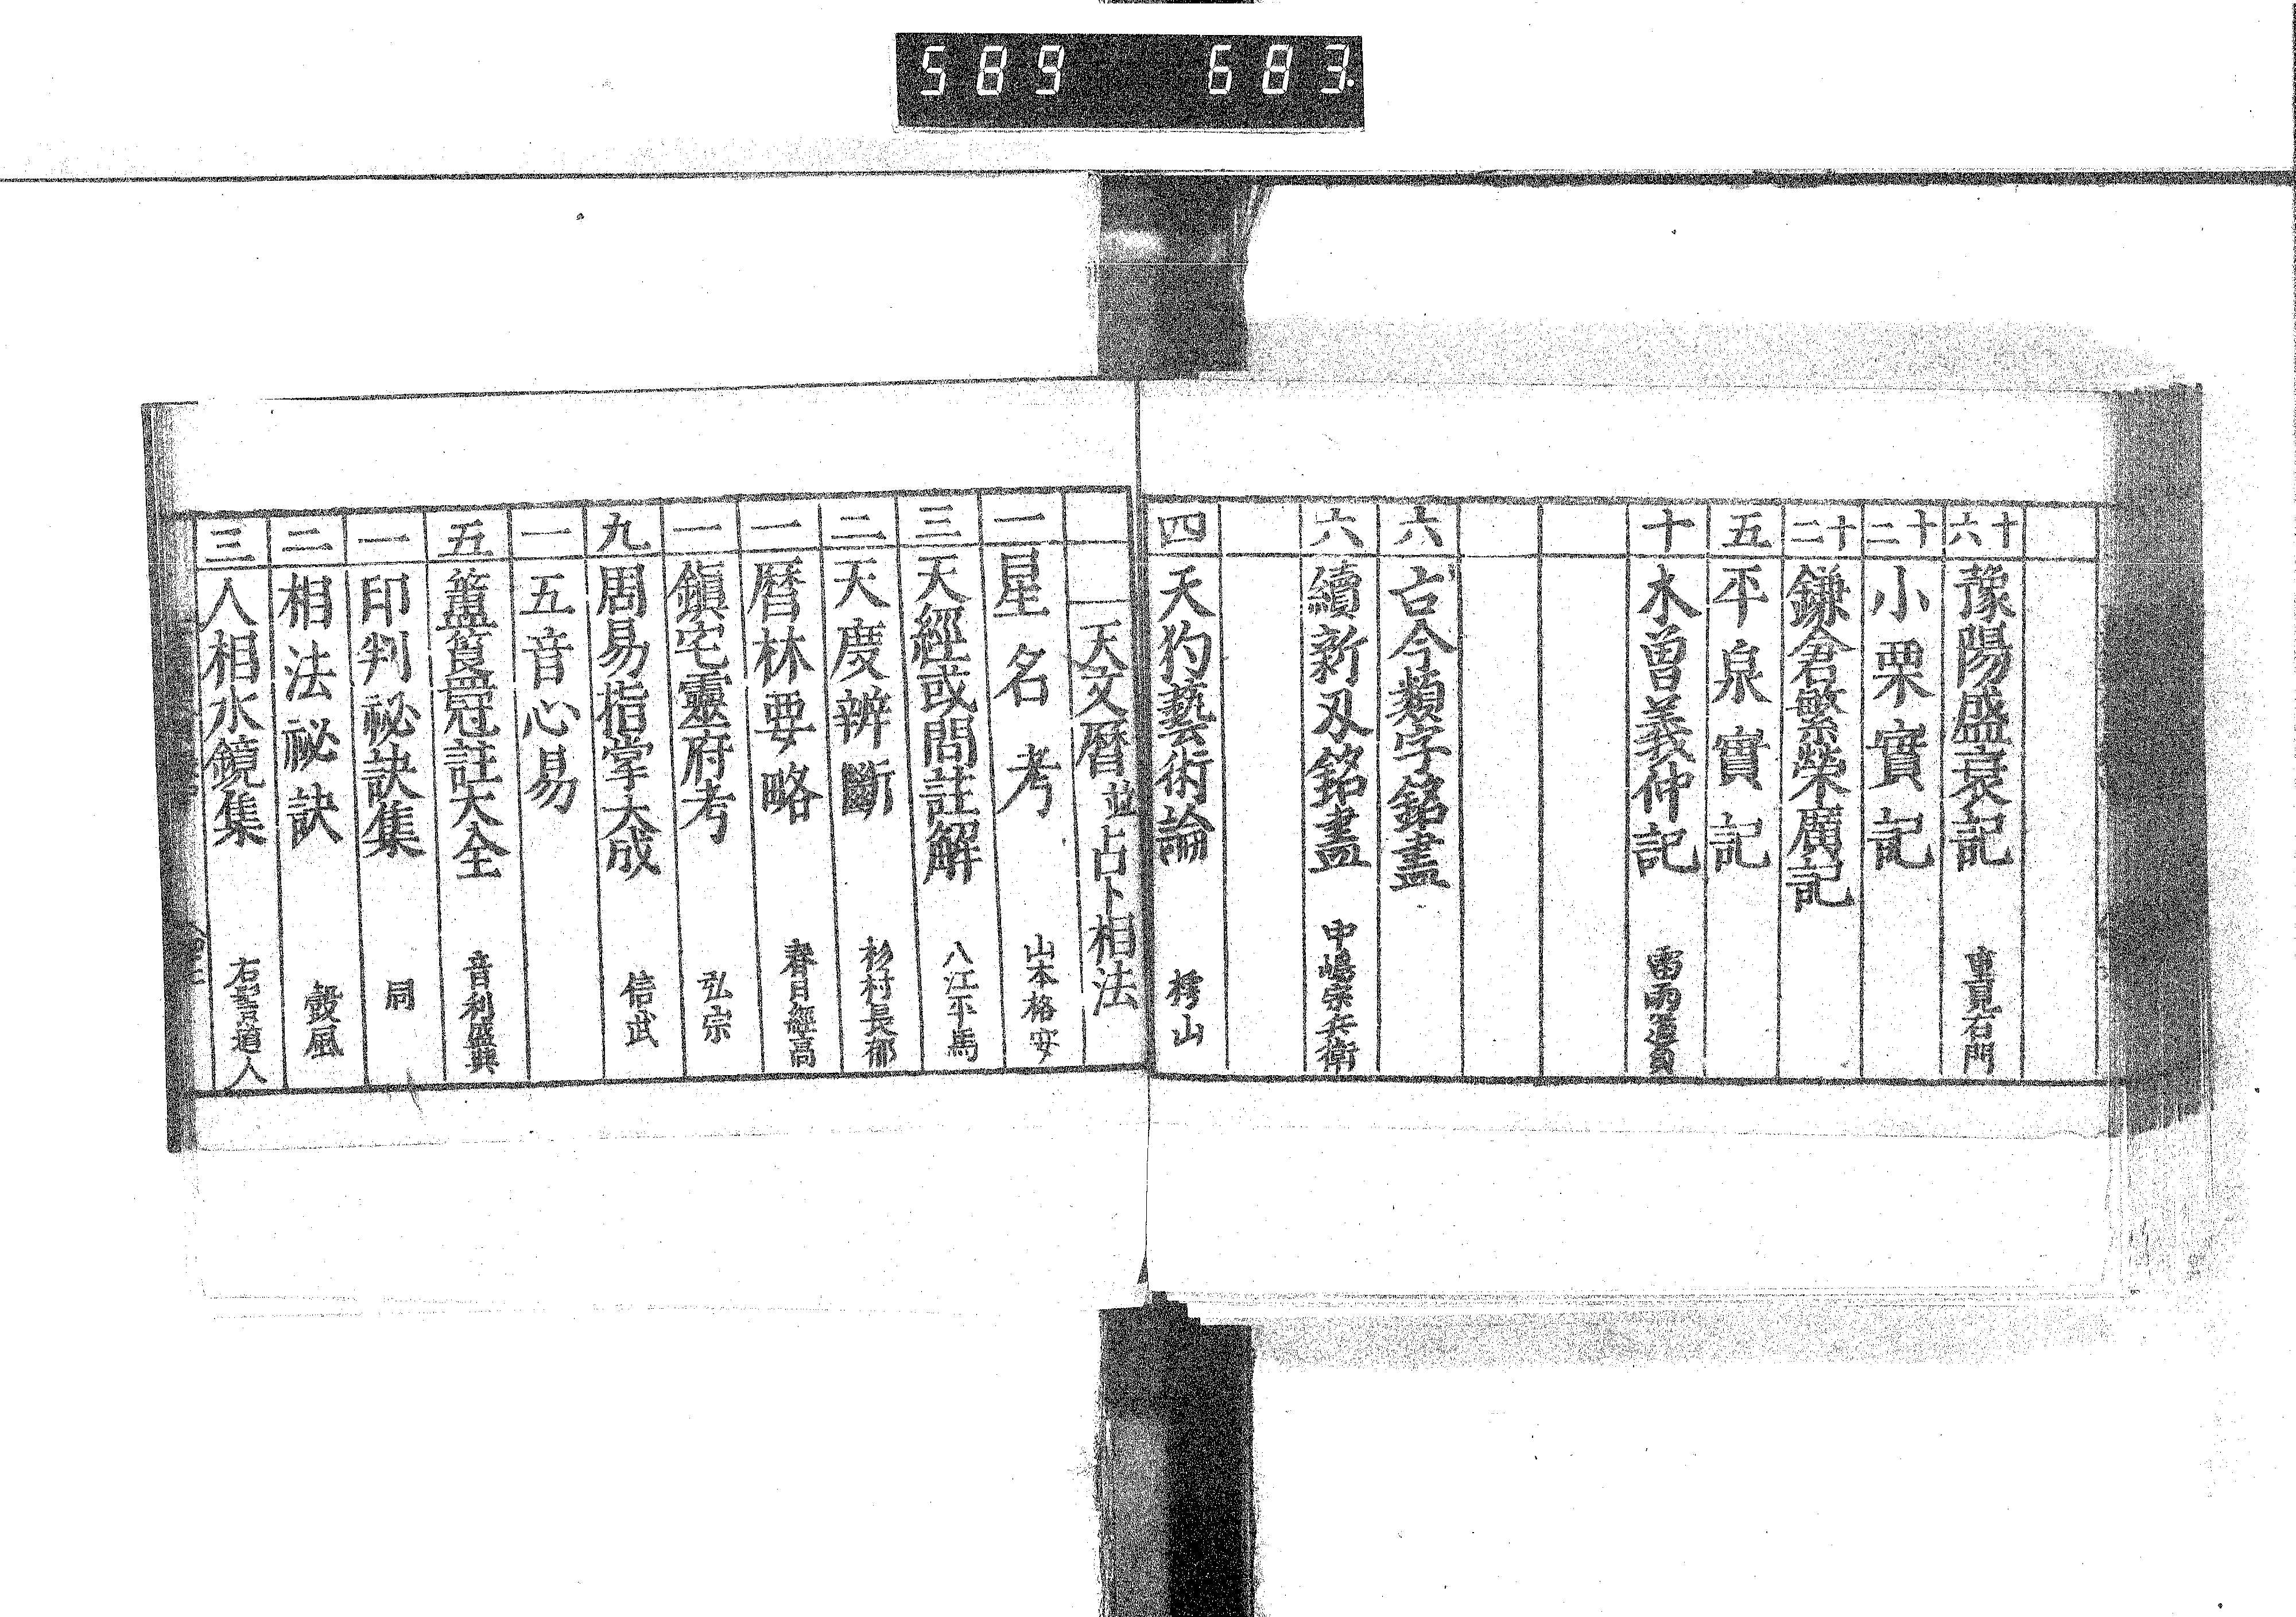 589 683
十六 豫陽盛衰記 重見右門
十二 小栗實記
十二 鎌倉繁榮廣記
五 平泉實記
十 木曽義仲記 雷雨道貞
六 古今類字銘盡
六 續新刄銘盡 中嶋宗兵衛
四 天狗藝術論 樗山
天文曆並占卜相法
一 星名考 山本格安
三 天經或問註解 入江平馬
二 天慶辨斷 杉村長郁
一 暦林要略 春日經高
一 鎭宅靈府考 弘宗
九 周易指掌大成 信武
一 五音心易
五 簠簋冠註大全 音利盛典
一 印判祕訣集 同
二 相法祕訣 風
三 人相水鏡集 右髻道人